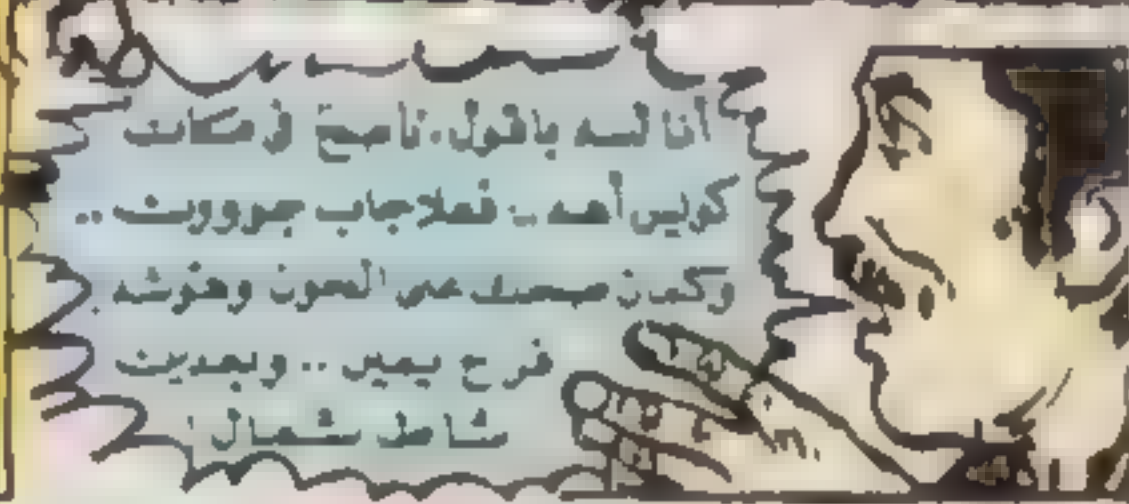 أنا لسه باقول .. ناصح في مكانت
كويس أهه .. فعلا جاب جرووث ..
وكمان ضحك على العون
فرح يمين .. وبعدين
شاط شمال !